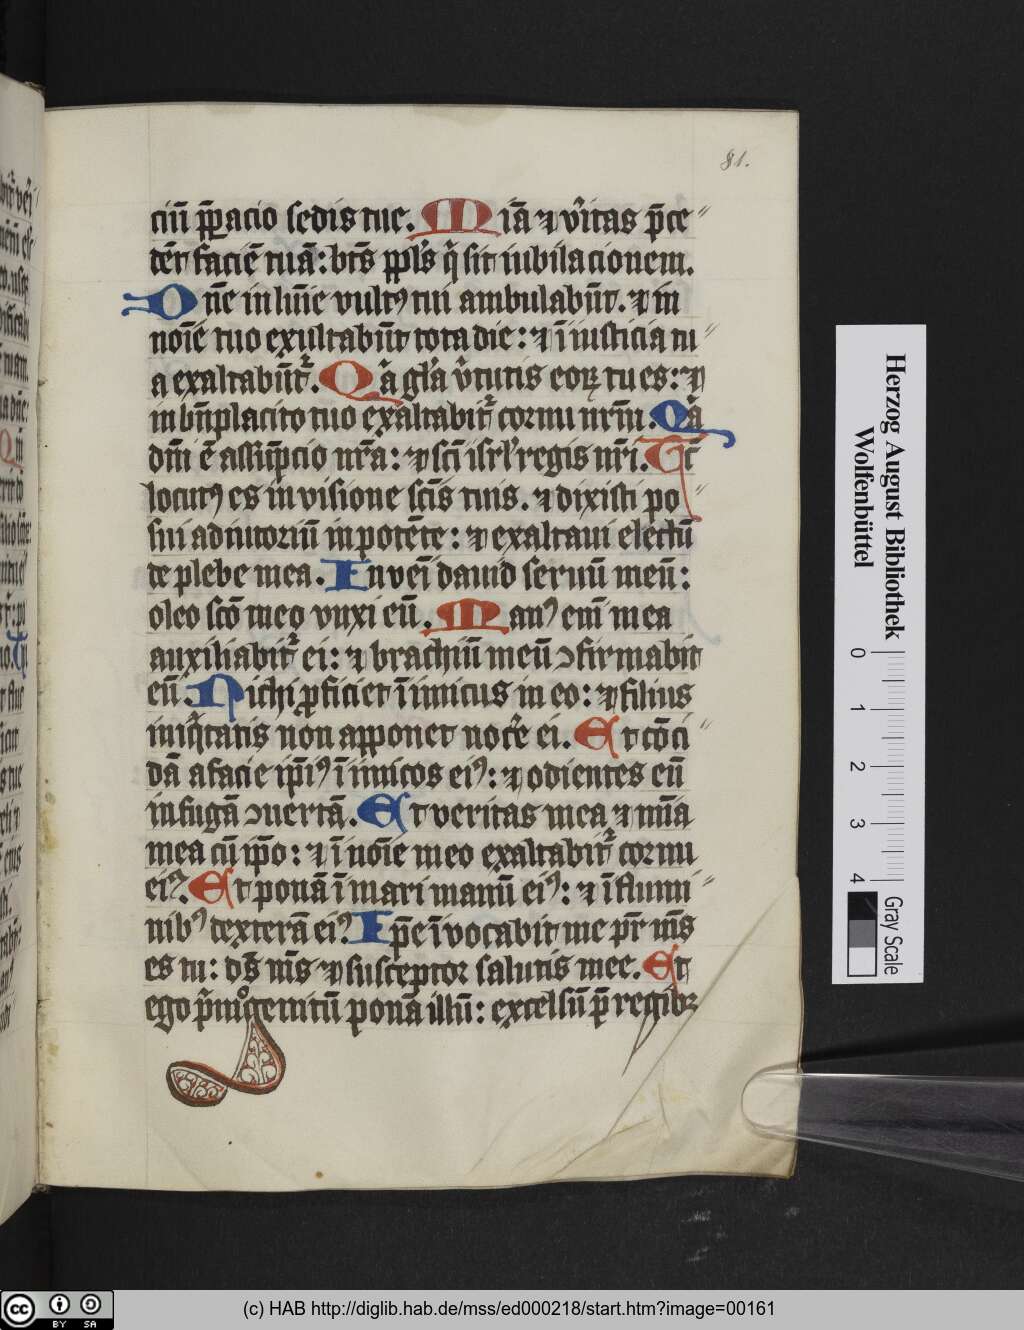 81.
ciū p̄pacio sedis tue. Mīa ⁊ v̓itas p̄ce〃
dēt faciē tuā : bt̄s ppl̓s q̓ sit iubilacionem.
Dn̄e in lūīe vultꝰ tui ambulabūt. ⁊ in
noīe tuo exultabūt tota die : ⁊ ī iusticia tu〃
a exaltabūt᷑. Qā gl̓a v̓tutis eoꝝ tu es : ⁊
in bn̄placito tuo exaltabit᷑ cornu nrm̄. Qā
dm̄i ē assūpcio nr̄a : ⁊ sc̄i isrl̓ regis nr̄i. Tc̄
locutꝰ es in visione sc̄is tuis. ⁊ dixisti po〃
sui adiutoriū in potēte : ⁊ exaltaui electū
de plebe mea. Inveī dauid seruū meū :
oleo scō meo vnxi eū. Manꝰ em̄ mea
auxiliabit᷑ ei : ⁊ brachiū meū ↄfirmabit
eū Nichi ꝓficiet īimicus in eo : ⁊ filius
iniq̓tatis non apponet noc̓e ei. Et cōci〃
dā a facie ip̄iꝰ īimicos eiꝰ : ⁊ odientes eū
in fugā ↄuertā. Et veritas mea ⁊ mīa
mea cū ip̄o : ⁊ ī noīe meo exaltabit᷑ cornu
eiꝰ. Et ponā ī mari manū eiꝰ : ⁊ ī flumi〃
nibꝰ dexterā eiꝰ. Ip̄e īvocabit me pr̄ ms̄
es tu : ds̄ ms̄ ⁊ susceptor salutis mee. Et
ego p̓mogenitū ponā illū : excelsū p̄ regibꝫ
Herzog August Bibliothek
Wolfenbüttel
0 1 2 3 4
Gray Scale
cc BY SA
(c) HAB http://diglib.hab.de/mss/ed000218/start.htm?image=00161